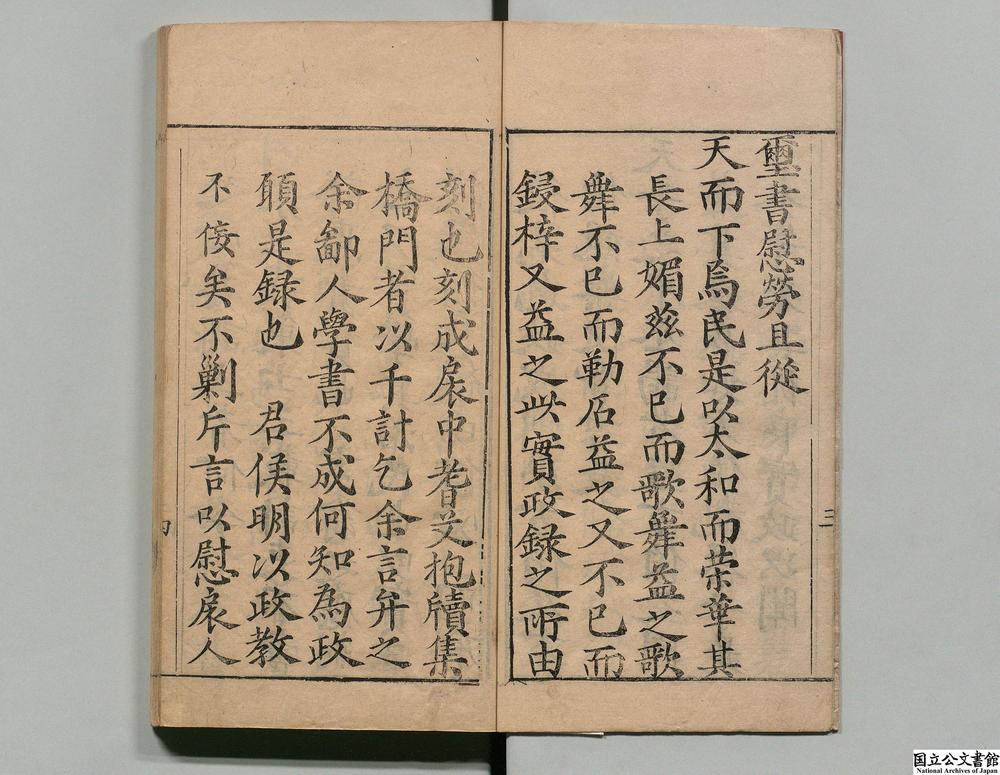 璽書慰勞且從
天而下焉民是以太和而荣華其
長上媚兹不已而歌舞益之歌
舞不已而勒石益之又不已而
鋟梓又益之此實政録之所由
三
刻也刻成扆中耆艾抱牘集
橋門者以千計乞余言弁之
余鄙人學書不成何知為政
頋是録也 君侯明以政教
不佞矣不劗斤言以慰扆人
国立公文書館
National Archives of Japan